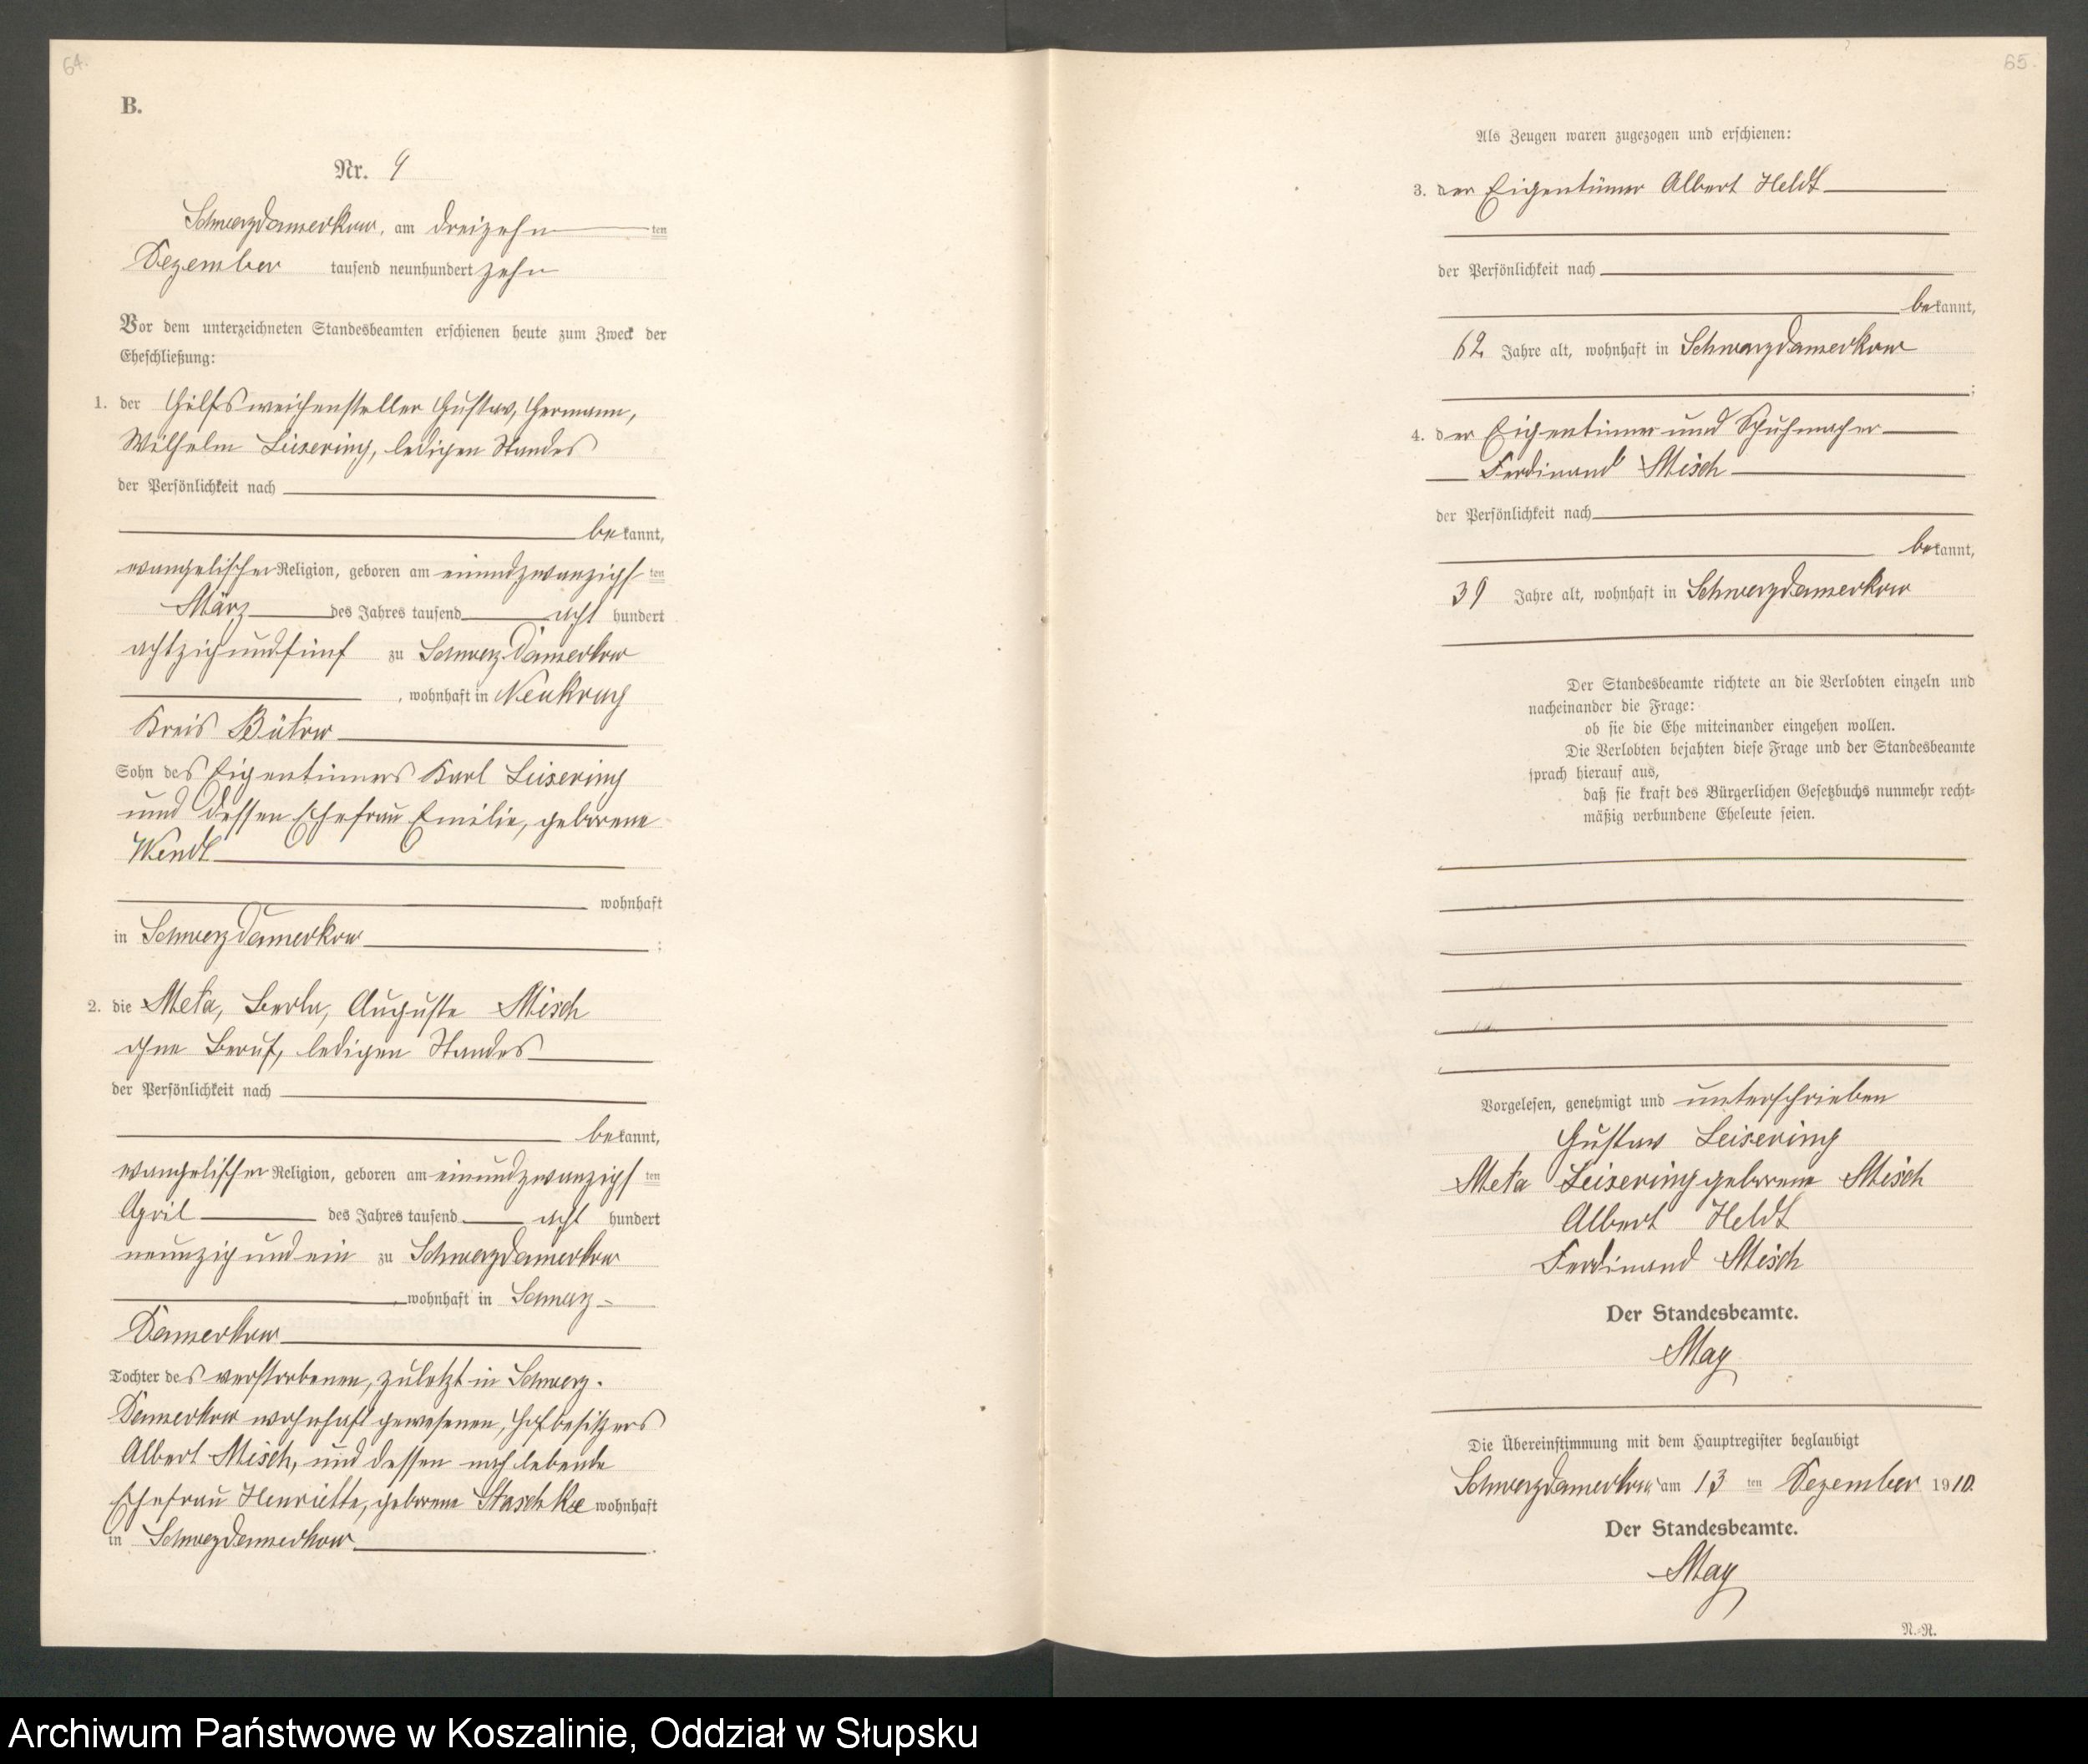 64.
B.
Nr. 9
Schwarzdamerkow, am dreizehn ten
Dezember tausend neunhundert zehn
Vor dem unterzeichneten Standesbeamten erschienen heute zum Zweck der
Eheschließung:
1. der Hilfsweichensteller Gustav, Hermann,
Wilhelm Leisering, ledigen Standes
der Persönlichkeit nach
bekannt,
evangelischer Religion, geboren am einundzwanzigsten
März des Jahres tausend acht hundert
achtzig und fünf zu Schwarz-Damerkow
, wohnhaft in Neukrug
Kreis Bütow
Sohn des Eigentümers Karl Leisering
und dessen Ehefrau Emilie, geborene
Wendt
wohnhaft
in Schwarzdamerkow ;
2. die Meta, Berta, Auguste Misch
ohne Beruf, ledigen Standes
der Persönlichkeit nach
bekannt,
evangelischer Religion, geboren am einundzwanzigsten
April des Jahres tausend acht hundert
neunzig und ein zu Schwarzdamerkow
, wohnhaft in Schwarz-
Damerkow
Tochter des verstorbenen, zuletzt in Schwarz-
Damerkow wohnhaft gewesenen, Hofbesitzers
Albert Misch, und dessen noch lebende
Ehefrau Henriette, geborene Staschke wohnhaft
in Schwarzdamerkow .
65.
Als Zeugen waren zugezogen und erschienen:
3. der Eigentümer Albert Heldt
der Persönlichkeit nach
bekannt,
62 Jahre alt, wohnhaft in Schwarzdamerkow
;
4. der Eigentümer und Schuhmacher
Ferdinand Misch
der Persönlichkeit nach
bekannt,
39 Jahre alt, wohnhaft in Schwarzdamerkow
Der Standesbeamte richtete an die Verlobten einzeln und
nacheinander die Frage:
ob sie die Ehe miteinander eingehen wollen.
Die Verlobten bejahten diese Frage und der Standesbeamte
sprach hierauf aus,
daß sie kraft des Bürgerlichen Gesetzbuchs nunmehr recht-
mäßig verbundene Eheleute seien.
Vorgelesen, genehmigt und unterschrieben
Gustav Leisering
Meta Leisering geborene Misch
Albert Heldt
Ferdinand Misch
Der Standesbeamte.
May
Die Übereinstimmung mit dem Hauptregister beglaubigt
Schwarzdamerkow, am 13 ten Dezember 1910.
Der Standesbeamte.
May
N.-R.
Archiwum Państwowe w Koszalinie, Oddział w Słupsku